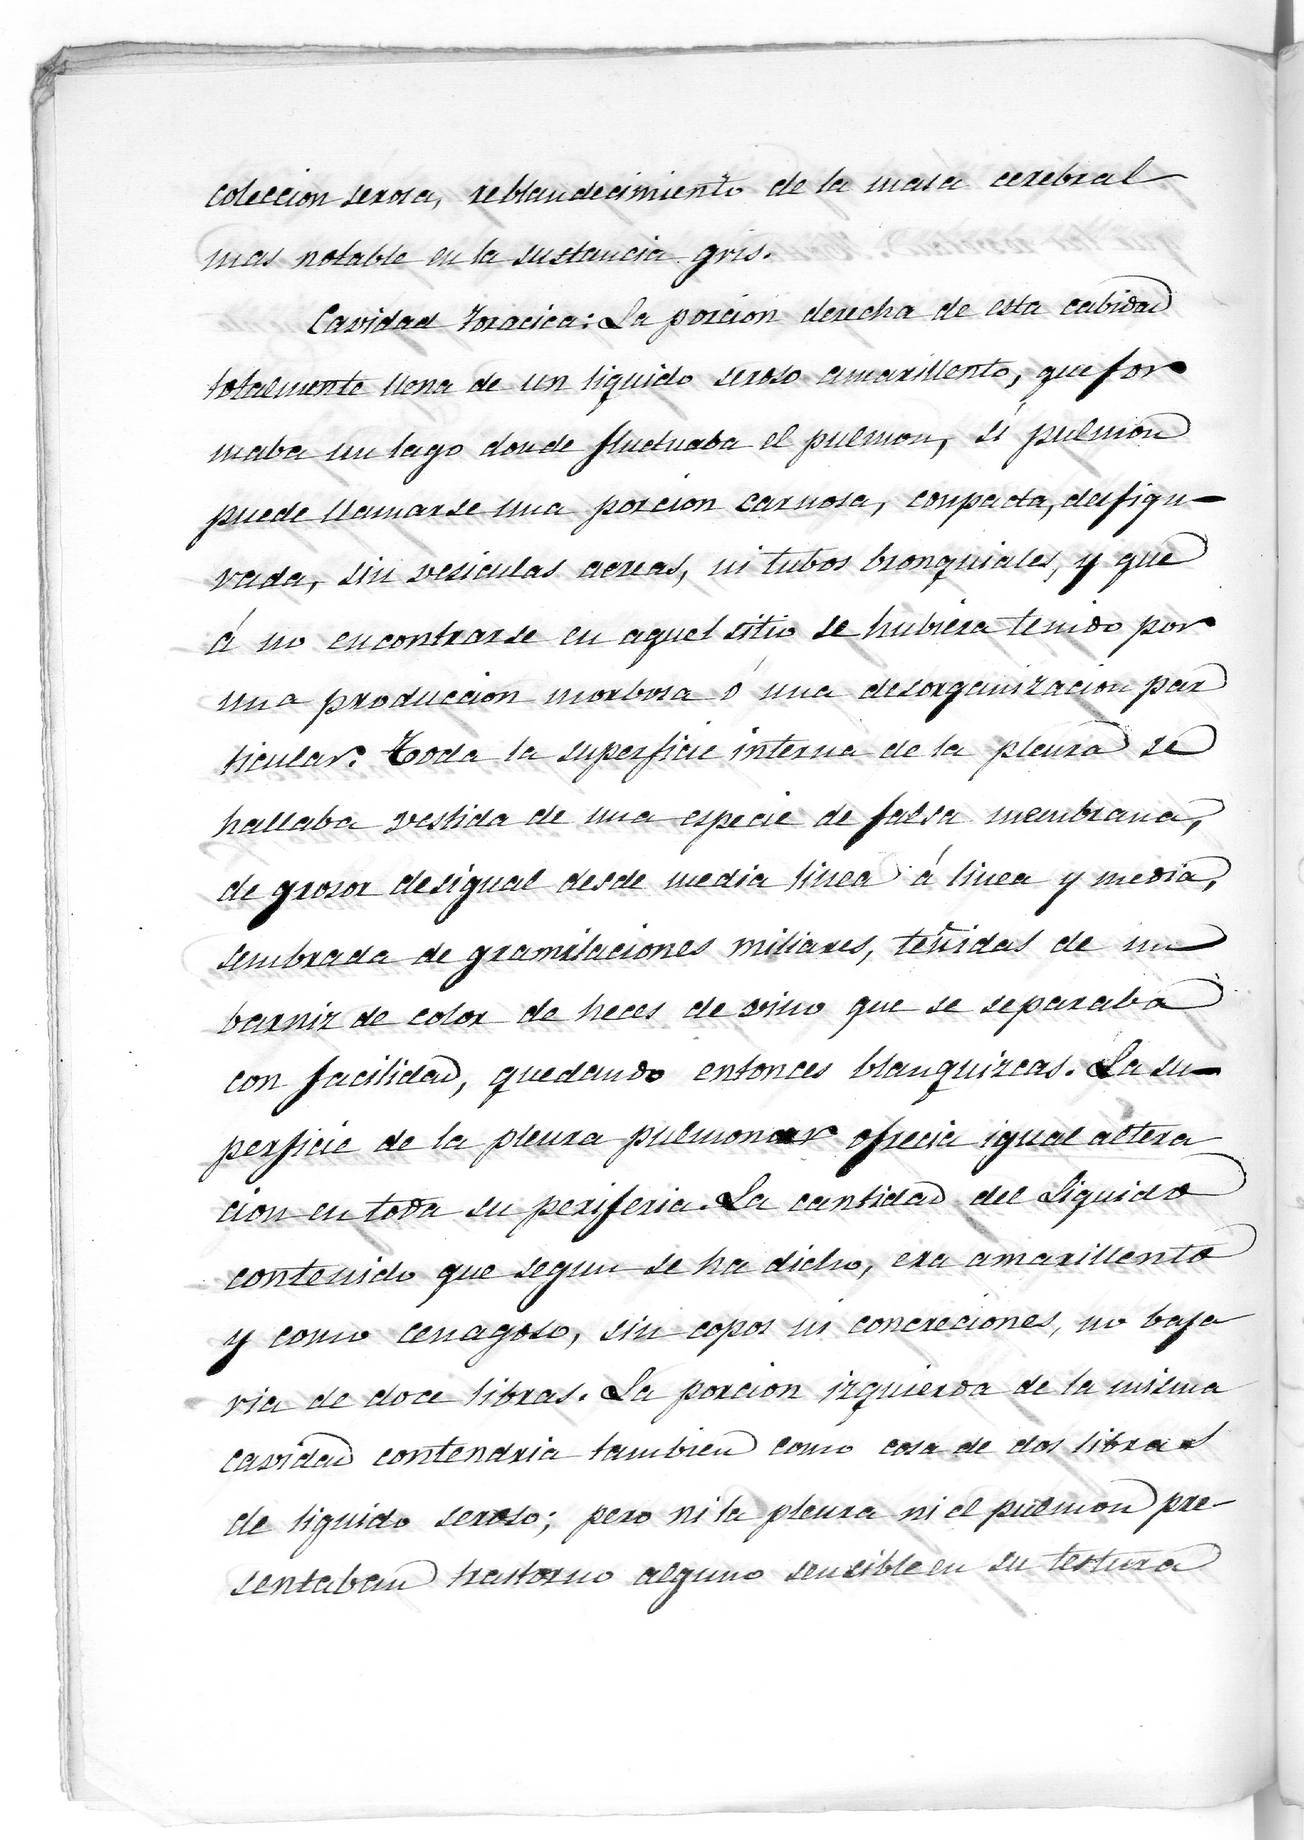 coleccion serosa, reblandecimiento de la masa cerebral
mas notable en la sustancia gris.
Cavidad toracica: La porcion derecha de esta cabidad
totalmente llena de un liquido seroso amarillento, que for
maba un lago donde fluctuaba el pulmon, si pulmon
puede llamarse una porcion carnosa, conpacta, desfigu-
rada, sin vesiculas aereas, ni tubos bronquiales, y que
á no encontrarse en aquel sitio se hubiera tenido por
una produccion morbosa ó una desorganizacion par
ticular. Toda la superficie interna de la pleura se
hallaba vestida de una especie de falsa membrana,
de grosor desigual desde media linea á linea y media,
sembrada de granulaciones miliares, teñidas de un
barniz de color de heces de vino que se separaba
con facilidad, quedando entonces blanquizcas. La su-
perficie de la pleura pulmonar ofrecia igual altera
cion en toda su periferia. La cantidad del liquido
contenido que segun se ha dicho, era amarillento
y como cenagoso, sin copos ni concreciones, no baja
ria de doce libras. La porcion izquierda de la misma
cavidad contendria tambien como cosa de dos libras
de liquido seroso; pero ni la pleura ni el pulmon pre-
sentaban trastorno alguno sensible en su testura